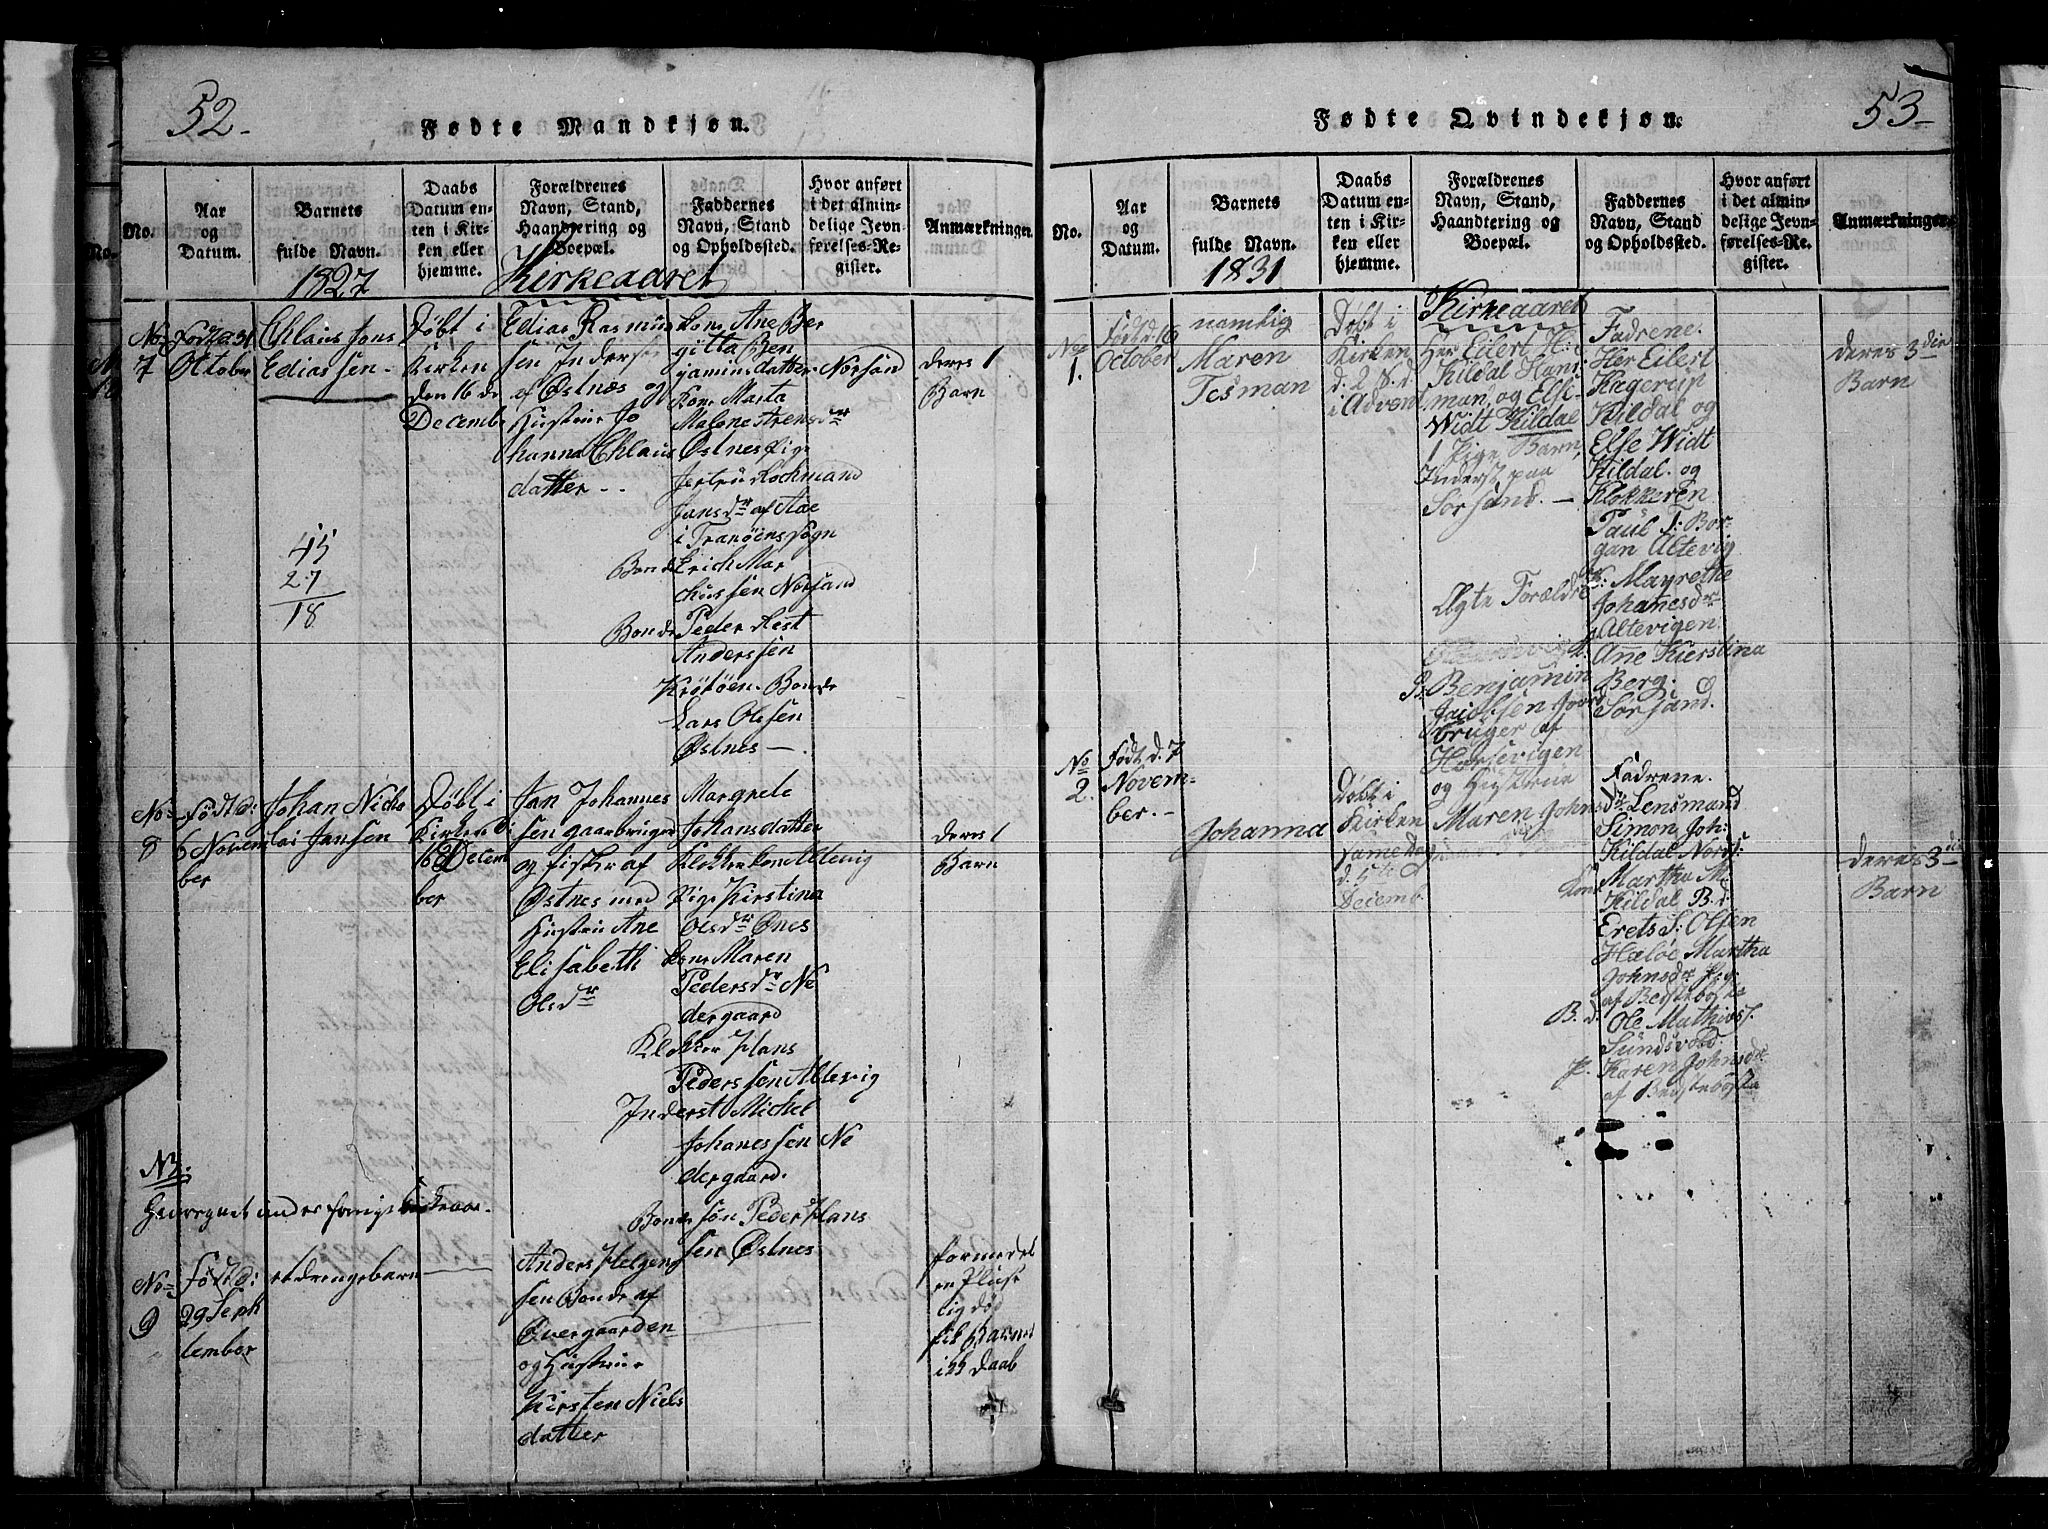 52-
Fødte Mandkjøn.
No.
Aar
og
Datum.
Barnets
fulde Navn.
Daabs
Datum en-
ten i Kir-
ken eller
hjemme.
Forældrenes
Navn, Stand,
Haandtering og
Boepæl.
Faddernes
Navn, Stand
og Opholdssted.
Hvor anført
i det almin-
delige Jevn-
førelses-Re-
gister.
Anmærkninger.
1827
Kirkeaaret
No
7
Født d 31
Oktober
Chlaus Jons
Ediassen
Døbt i
Kirken
den 16 de
Decembr
Edias Rasmus
sen Inderst
af Østnæs og
Hustrue Jo
hanna Chlaus
datter - -
Kone Ane Ber
gitta Ben
jamins datter Norsand
Kone Marta
Malene Arensdr
Østnes Pige
Jertru Lochmand
Jansdr af Aae
i Tranøens Sogn
Bonde Erich Mar
chussen Norsand
Bonde Peder Rest
Anderssen
Krøtøen. Bonde
Lars Olssen
Østnes -
deres 1
Barn
45
27
18
No
8
Født d:
6 Novem
ber
Johan Nicho
lai Jansen
Døbt i
Kirken d
16 Decem
ber
Jan Johannes
sen gaardbruger
og fisker af
Østnes med
Hustrue Ane
Elisabeth
Olsdr
Margrele
Johansdatter
Klokkerken Altevig
Pige Kirstina
Olsdr Ønes
kone Maren
Pedersdr Ne
dergaard
Klokker Hans
Pederssen Altevig
Inderst Michel
Johanessen Ne
dergaard.
Bonde søn Peder Hans
sen Østnes
deres 1
Barn
No
9
Født d:
29 Sept
tember
et drengebarn
Anders Helgens
sen Bonde af
Øvergaarden
og Hustrue
Kirsten Niels
datter
formedelst
en Pluse
lig død
fik Barnet
ikk Daab
53-
Fødte Qvindekjøn.
No.
Aar
og
Datum.
Barnets
fulde Navn.
Daabs
Datum en-
ten i Kir-
ken eller
hjemme.
Forældrenes
Navn, Stand,
Haandtering og
Boepæl.
Faddernes
Navn, Stand
og Opholdssted.
Hvor anført
i det almin-
delige Jevn-
førelses-Re-
gister.
Anmærkninger.
1831
Kirkeaaret
No
1.
Født d 16
October
namlig
Maren
Tesman
Døbt i
Kirken
d. 2 S. d.
i Advent
Her Eilert H:
Kildal Hans
man, og Else
Widt Kildal
1 Pige Barn,
Inderst paa
Sørsand. -
Ægte Forældre
Fadrene.
Her Eilert
Hagerup
Kildal og
Else Widt
Kildal. og
Klokkeren
Paul J: Bor
gan Altevig
K: Mayrethe
Johanesdr
Altevigen
Ane Kierstina
Berg.
Sørsand.
deres 3die
Barn
No
2.
Født d. 7
Novem-
ber. -
Johanna
Døbt i
Kirken
Same Dag
d. 5te
Decemb.
Benjamin
Jacobsen
bruger af
Havsevigen
og Hustrue
Maren Johnsdr
Fadrene.
Lensmand
Simon Joh:
Kildal Nors:
Kone Martha M.
Kildal B. d.
Erets S: Olsen
Haløe Martha
Johnsdr Pige
af Bedstebøste
B. d. Ole Mathias J.
Sundsvold
P. Karen Johnsdr
af Bedstebøsta
deres 3die
Barn